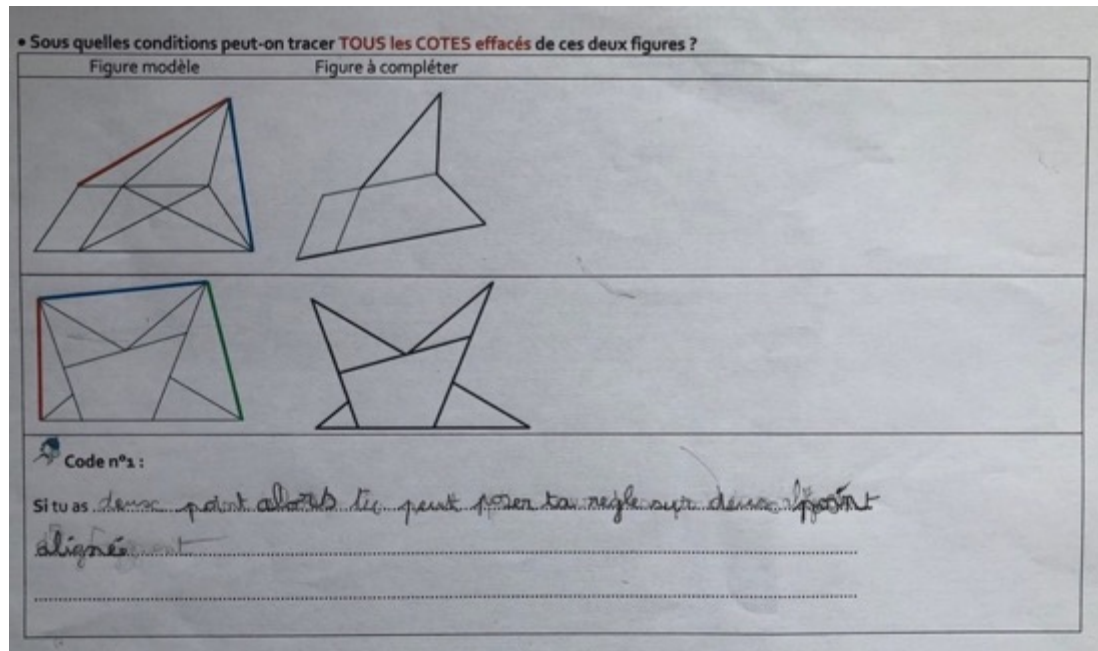 • Sous quelles conditions peut-on tracer TOUS les COTES effacés de ces deux figures ?
Figure modèle Figure à compléter
Code n°1 :
Si tu as deux point alors tu peut poser ta regle sur deux point
alignée